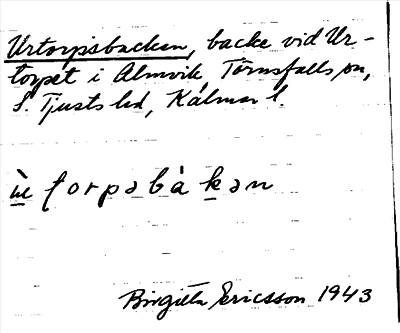 Urtorpsbacken, backe vid Ur-
torpet i Almvik, Törnsfalls sn,
S. Tjusts hd, Kalmar l.
ù̲e̲ t̩orpəbàk̲ən
Birgitta Ericsson 1943